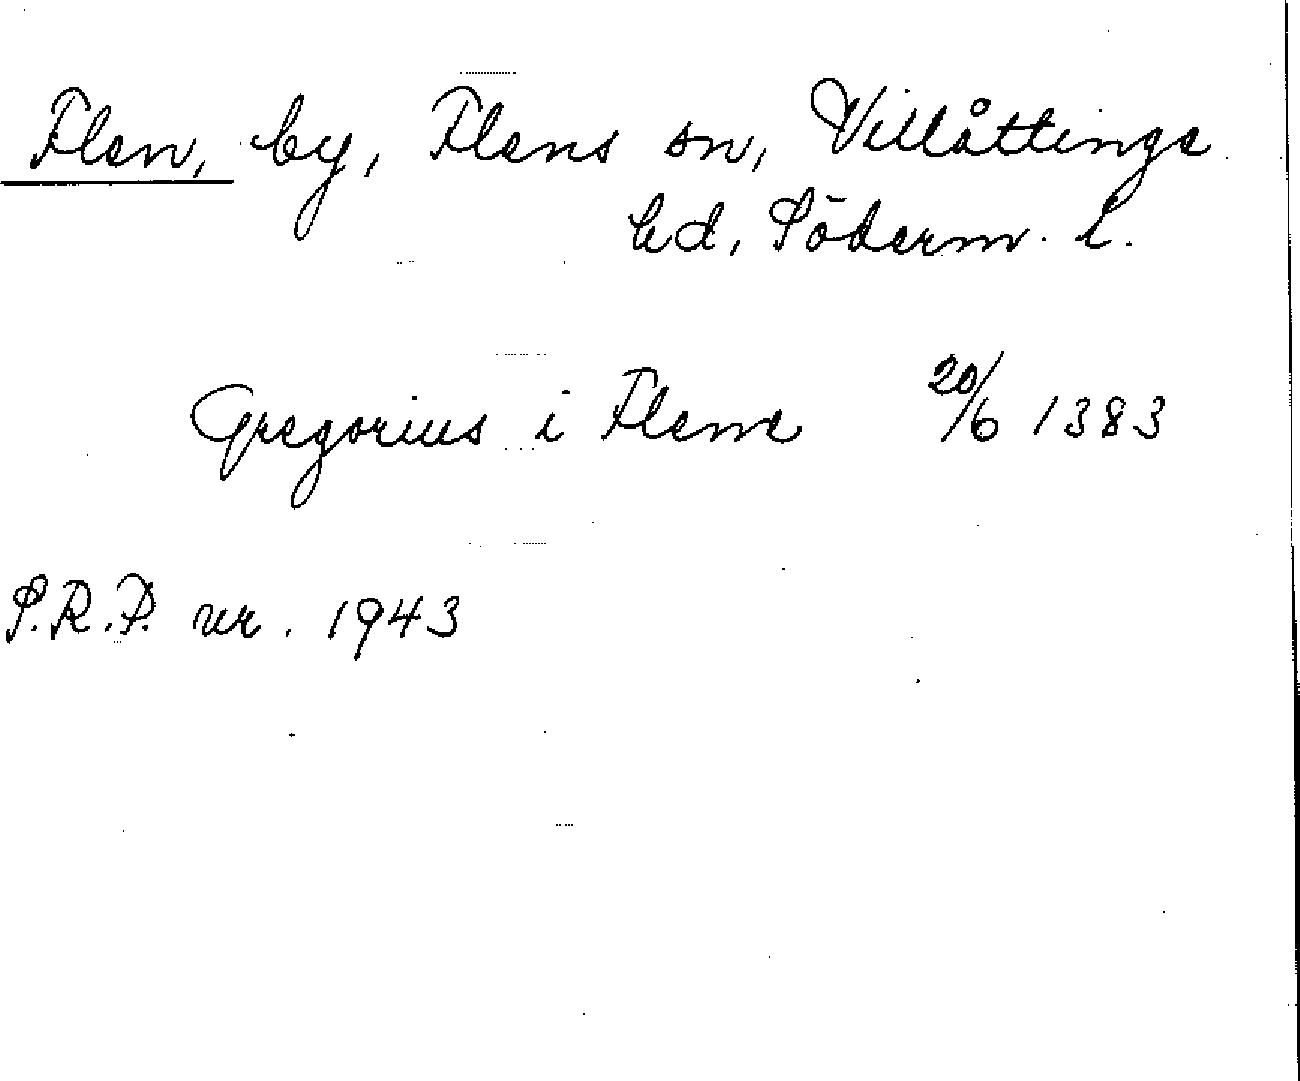 Flen, by, Flens sn, Villåttinge
hd, Söderm. l.
Gregorius i Flene 20/6 1383
S.R.P. nr. 1943